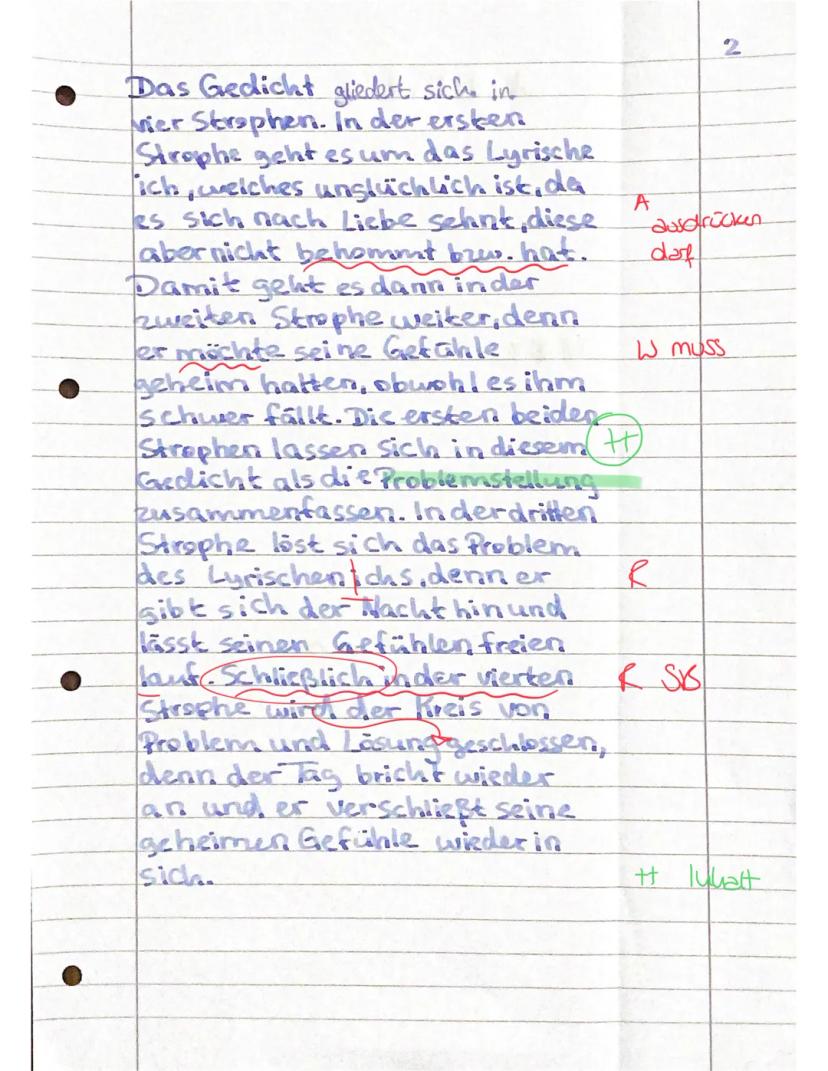 2
Das Gedicht gliedert sich in
vier Strophen. In der ersten
Strophe geht es um das Lyrische
ich, welches unglücklich ist, da
es sich nach Liebe sehnt, diese
A
ausdrücken
aber nicht bekommt bzw. hat.
darf
Damit geht es dann in der
zweiten Strophe weiter, denn
er möchte seine Gefühle
W muss
geheim halten, obwohl es ihm
schwer fällt. Die ersten beiden
Strophen lassen sich in diesem
++
Gedicht als die Problemstellung
zusammenfassen. In der dritten
Strophe löst sich das Problem
des Lyrischen ichs, denn er
R
gibt sich der Nacht hin und
lässt seinen Gefühlen freien
lauf. Schließlich in der vierten
R SB
Strophe wird der Kreis von
Problem und Lösung geschlossen,
denn der Tag bricht wieder
an und er verschließt seine
geheimen Gefühle wieder in
sich.
++ Inhalt